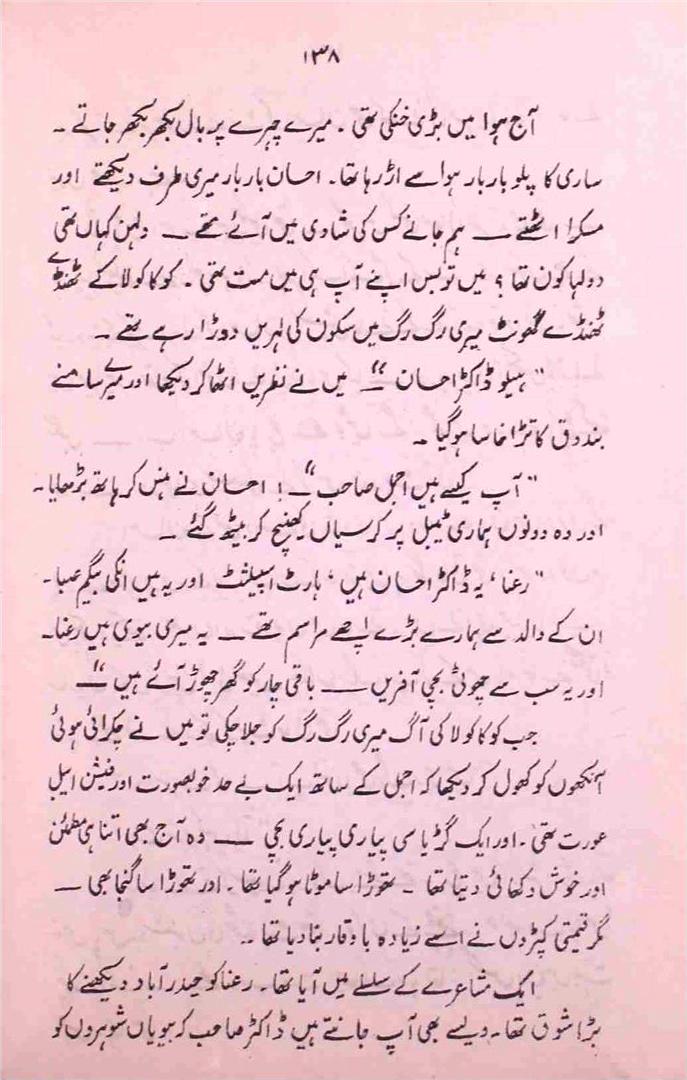 ۱۳۸
آج ہوا میں بڑی خنکی تھی ۔ میرے چہرے پر بال بکھر بکھر جاتے ۔
ساری کا پلو بار بار ہوا سے اڑ رہا تھا۔ احسان بار بار میری طرف دیکھتے اور
مسکرا اٹھتے ۔۔ ہم جانے کس کی شادی میں آئے تھے ۔۔ دلہن کہاں تھی
دولہا کون تھا ؟ میں تو بس اپنے آپ ہی میں مست تھی ۔ کوکا کولا کے ٹھنڈے
ٹھنڈے گھونٹ میری رگ رگ میں سکون کی لہریں دوڑا رہے تھے ۔
"ہیلو ڈاکٹر احسان ۔۔" میں نے نظریں اٹھا کر دیکھا اور میرے سامنے
بندوق کا تڑاخا سا ہو گیا ۔
"آپ کیسے ہیں اجمل صاحب ۔۔" ! احسان نے ہنس کر ہاتھ بڑھایا۔
اور وہ دونوں ہماری ٹیبل پر کرسیاں کھینچ کر بیٹھ گئے ۔
"رعنا ، یہ ڈاکٹر احسان ہیں ، ہارٹ اسپیلشٹ اور یہ ہیں انکی بیگم صبا۔
ان کے والد سے ہمارے بڑے اچھے مراسم تھے ۔۔ یہ میری بیوی ہیں رعنا۔
اور یہ سب سے چھوٹی بچی آفریں ۔۔ باقی چار کو گھر چھوڑ آئے ہیں ۔۔"
جب کوکا کولا کی آگ میری رگ رگ کو جلا چکی تو میں نے چکرائی ہوئی
آنکھوں کو کھول کر دیکھا کہ اجمل کے ساتھ ایک بے حد خوبصورت اور فیشن ایبل
عورت تھی ۔ اور ایک گڑیا سی پیاری پیاری بچی ۔۔ وہ آج بھی اتنا ہی مطمئن
اور خوش دکھائی دیتا تھا ۔ تھوڑا سا موٹا ہو گیا تھا ۔ اور تھوڑا سا گنجا بھی ۔۔
مگر قیمتی کپڑوں نے اسے زیادہ باوقار بنا دیا تھا ۔
ایک مشاعرے کے سلسلے میں آیا تھا۔ رعنا کو حیدرآباد دیکھنے کا
بڑا شوق تھا۔ ویسے بھی آپ جانتے ہیں ڈاکٹر صاحب کہ بیویاں شوہروں کو